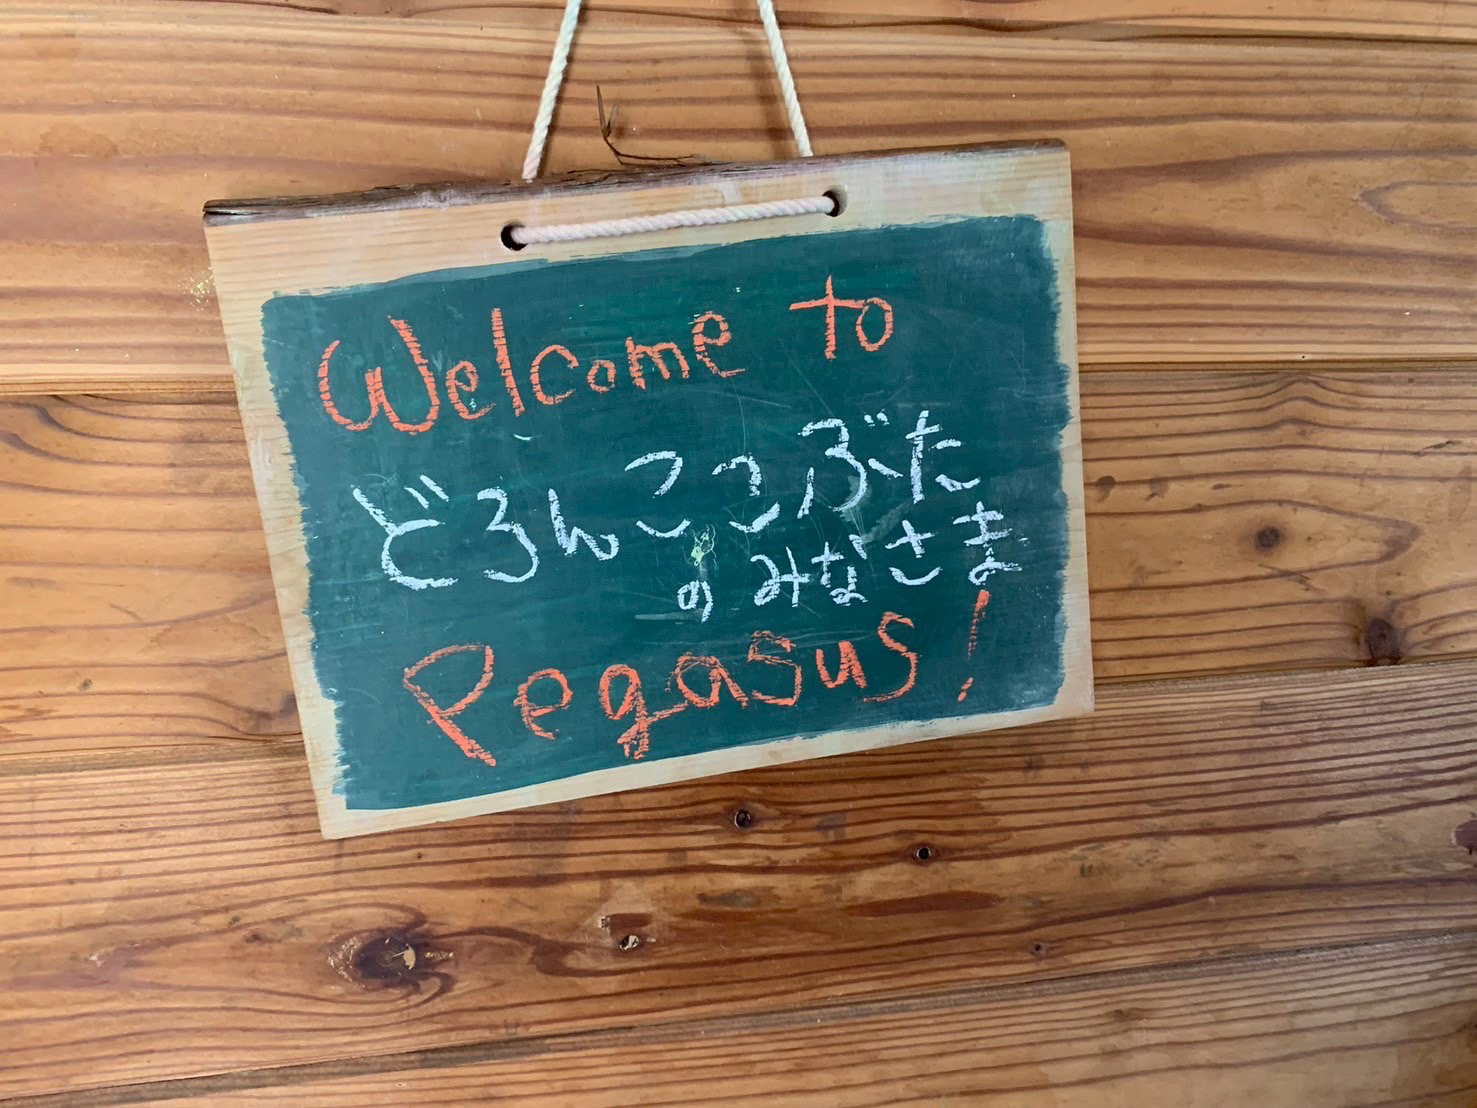 Welcome to
どろんここぶた
のみなさま
Pegasus!